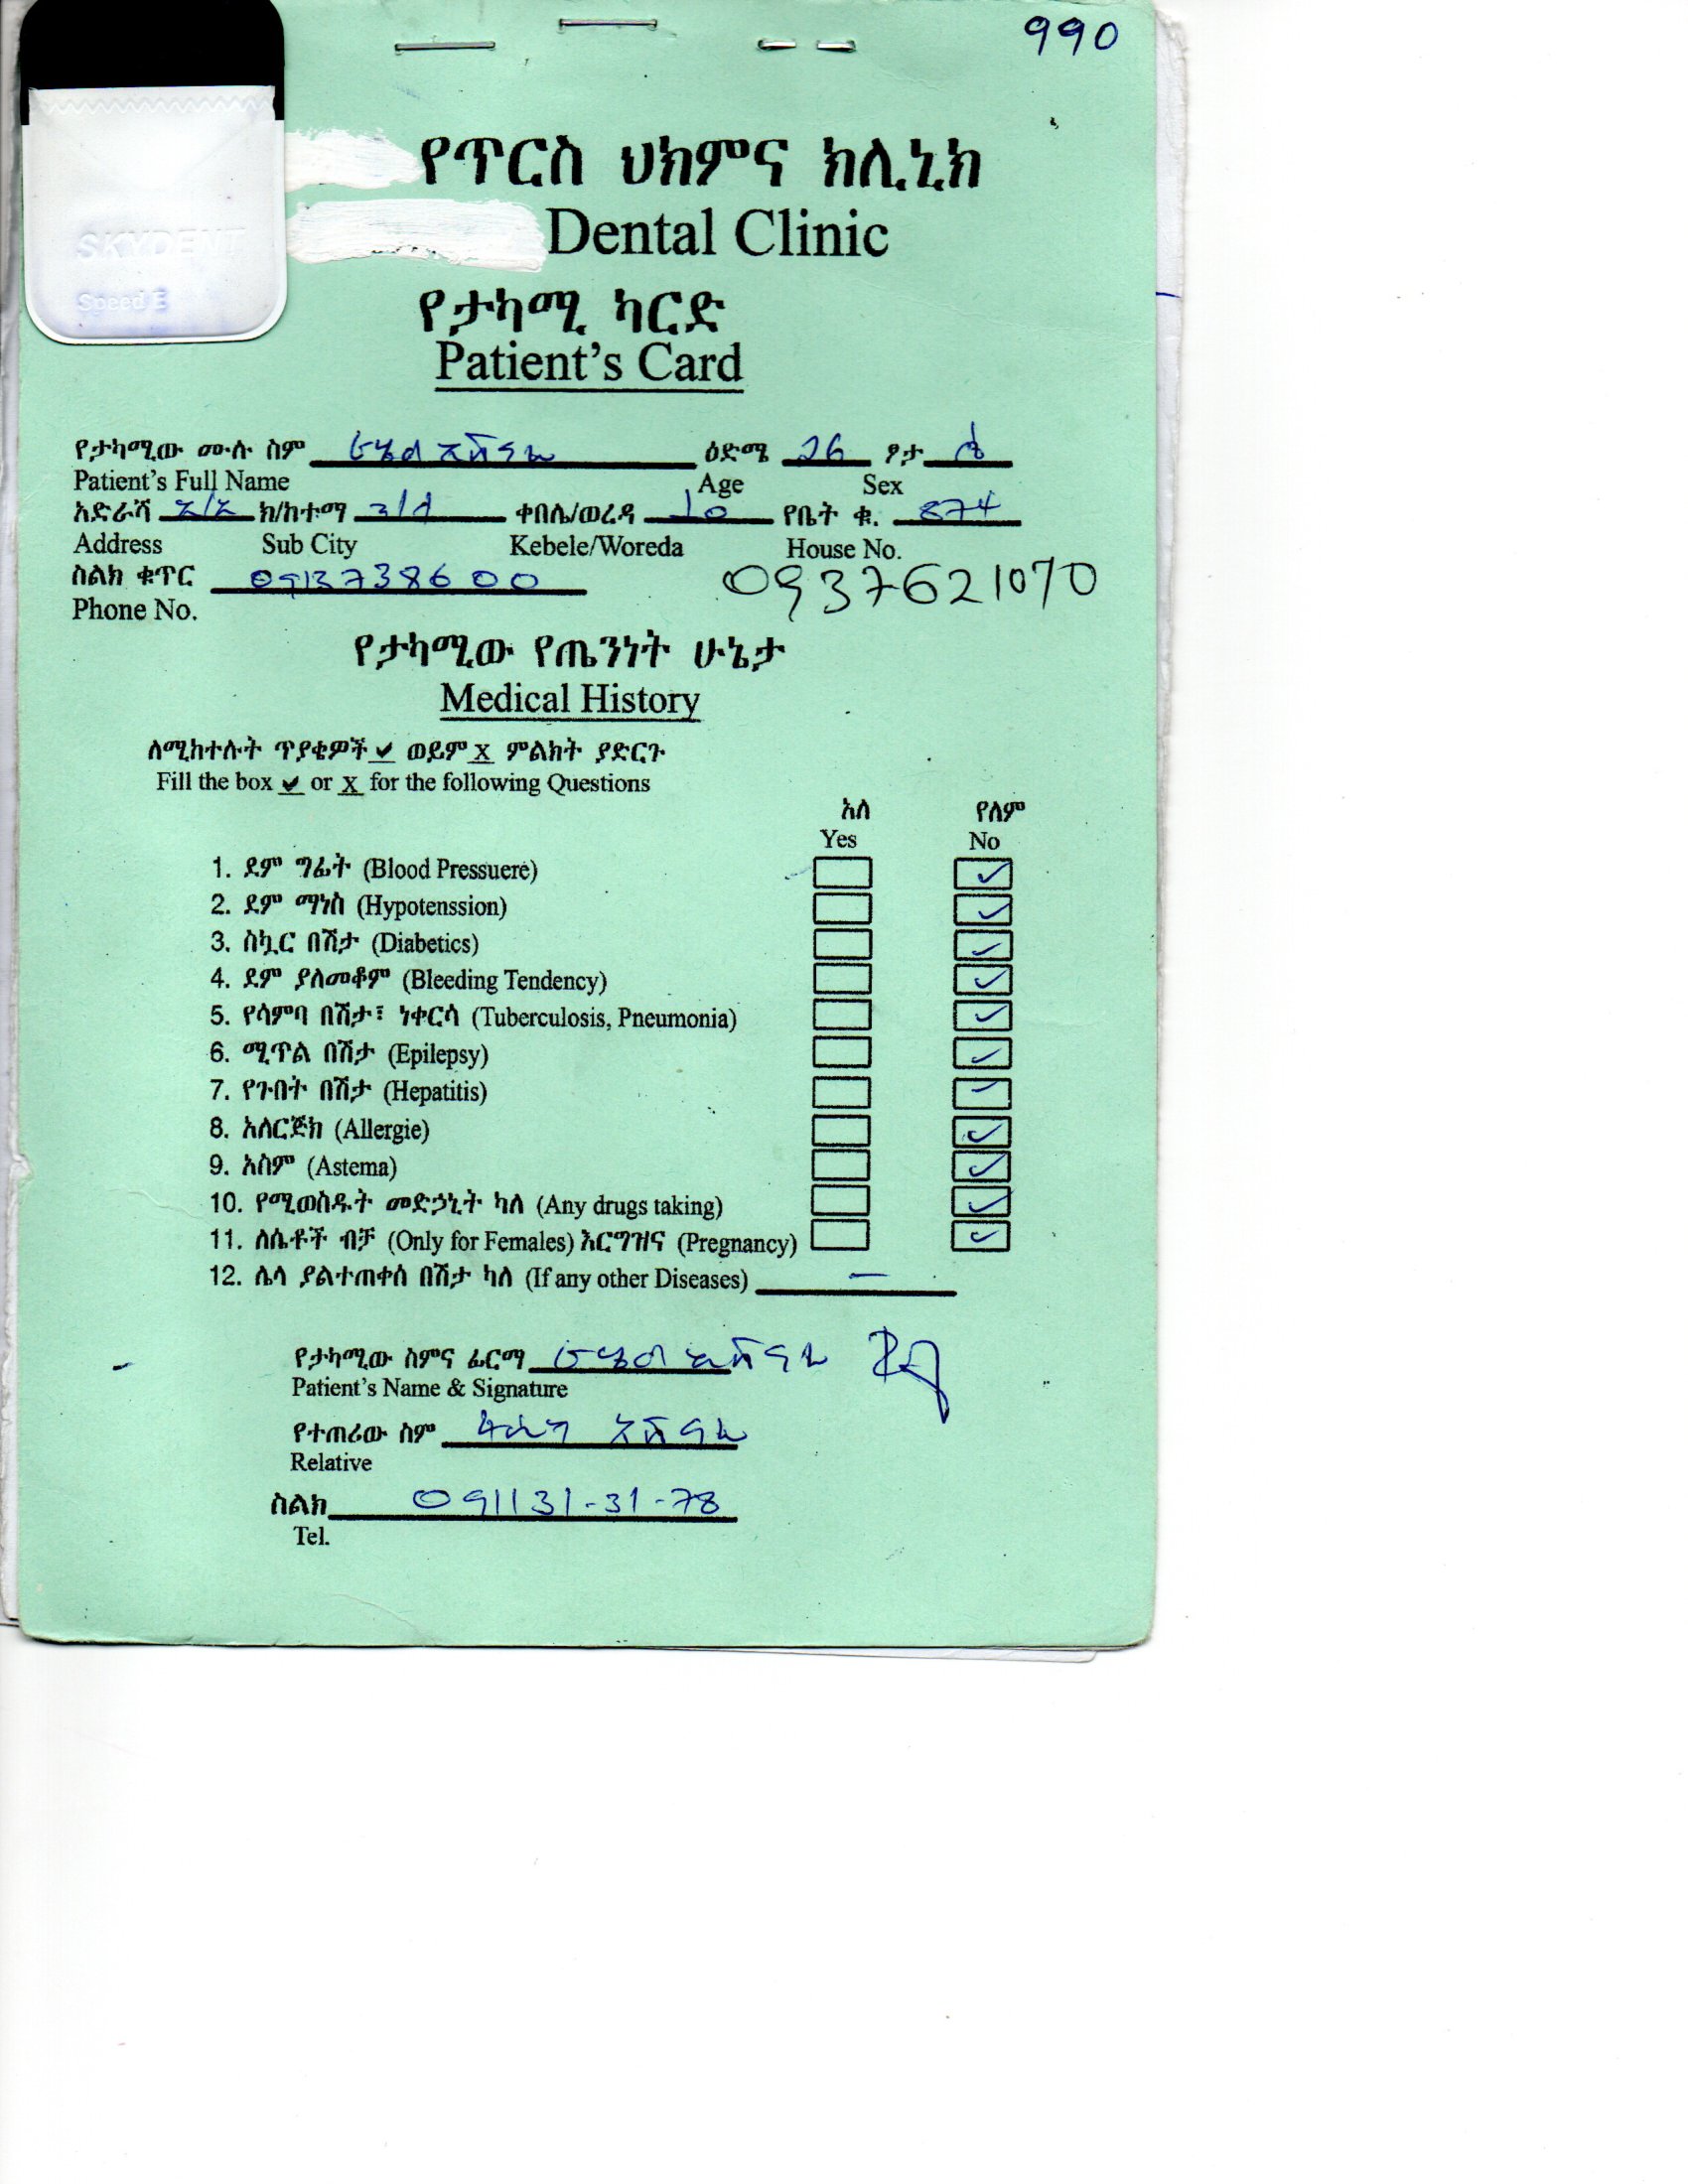 990
SKYDENT
Speed E
የጥርስ ህክምና ክሊኒክ
Dental Clinic
የታካሚ ካርድ
Patient's Card
የታካሚው ሙሉ ስም ዕድሜ 26 ፆታ ሴ
Patient's Full Name Age Sex
አድራሻ አ/አ ክ/ከተማ ቀበሌ/ወረዳ 10 የቤት ቁ. 874
Address Sub City Kebele/Woreda House No.
ስልክ ቁጥር 0913738600 0937621070
Phone No.
የታካሚው የጤንነት ሁኔታ
Medical History
ለሚከተሉት ጥያቄዎች ✔ ወይም X ምልክት ያድርጉ
Fill the box ✔ or X for the following Questions
አለ የለም
Yes No
1. ደም ግፊት (Blood Pressuere) ✓
2. ደም ማነስ (Hypotenssion) ✓
3. ስኳር በሽታ (Diabetics) ✓
4. ደም ያለመቆም (Bleeding Tendency) ✓
5. የሳምባ በሽታ፣ ነቀርሳ (Tuberculosis, Pneumonia) ✓
6. ሚጥል በሽታ (Epilepsy) ✓
7. የጉበት በሽታ (Hepatitis) ✓
8. አለርጅክ (Allergie) ✓
9. አስም (Astema) ✓
10. የሚወስዱት መድኃኒት ካለ (Any drugs taking) ✓
11. ለሴቶች ብቻ (Only for Females) እርግዝና (Pregnancy) ✓
12. ሌላ ያልተጠቀሰ በሽታ ካለ (If any other Diseases) —
የታካሚው ስምና ፊርማ
Patient's Name & Signature
የተጠሪው ስም
Relative
ስልክ 091131-31-78
Tel.